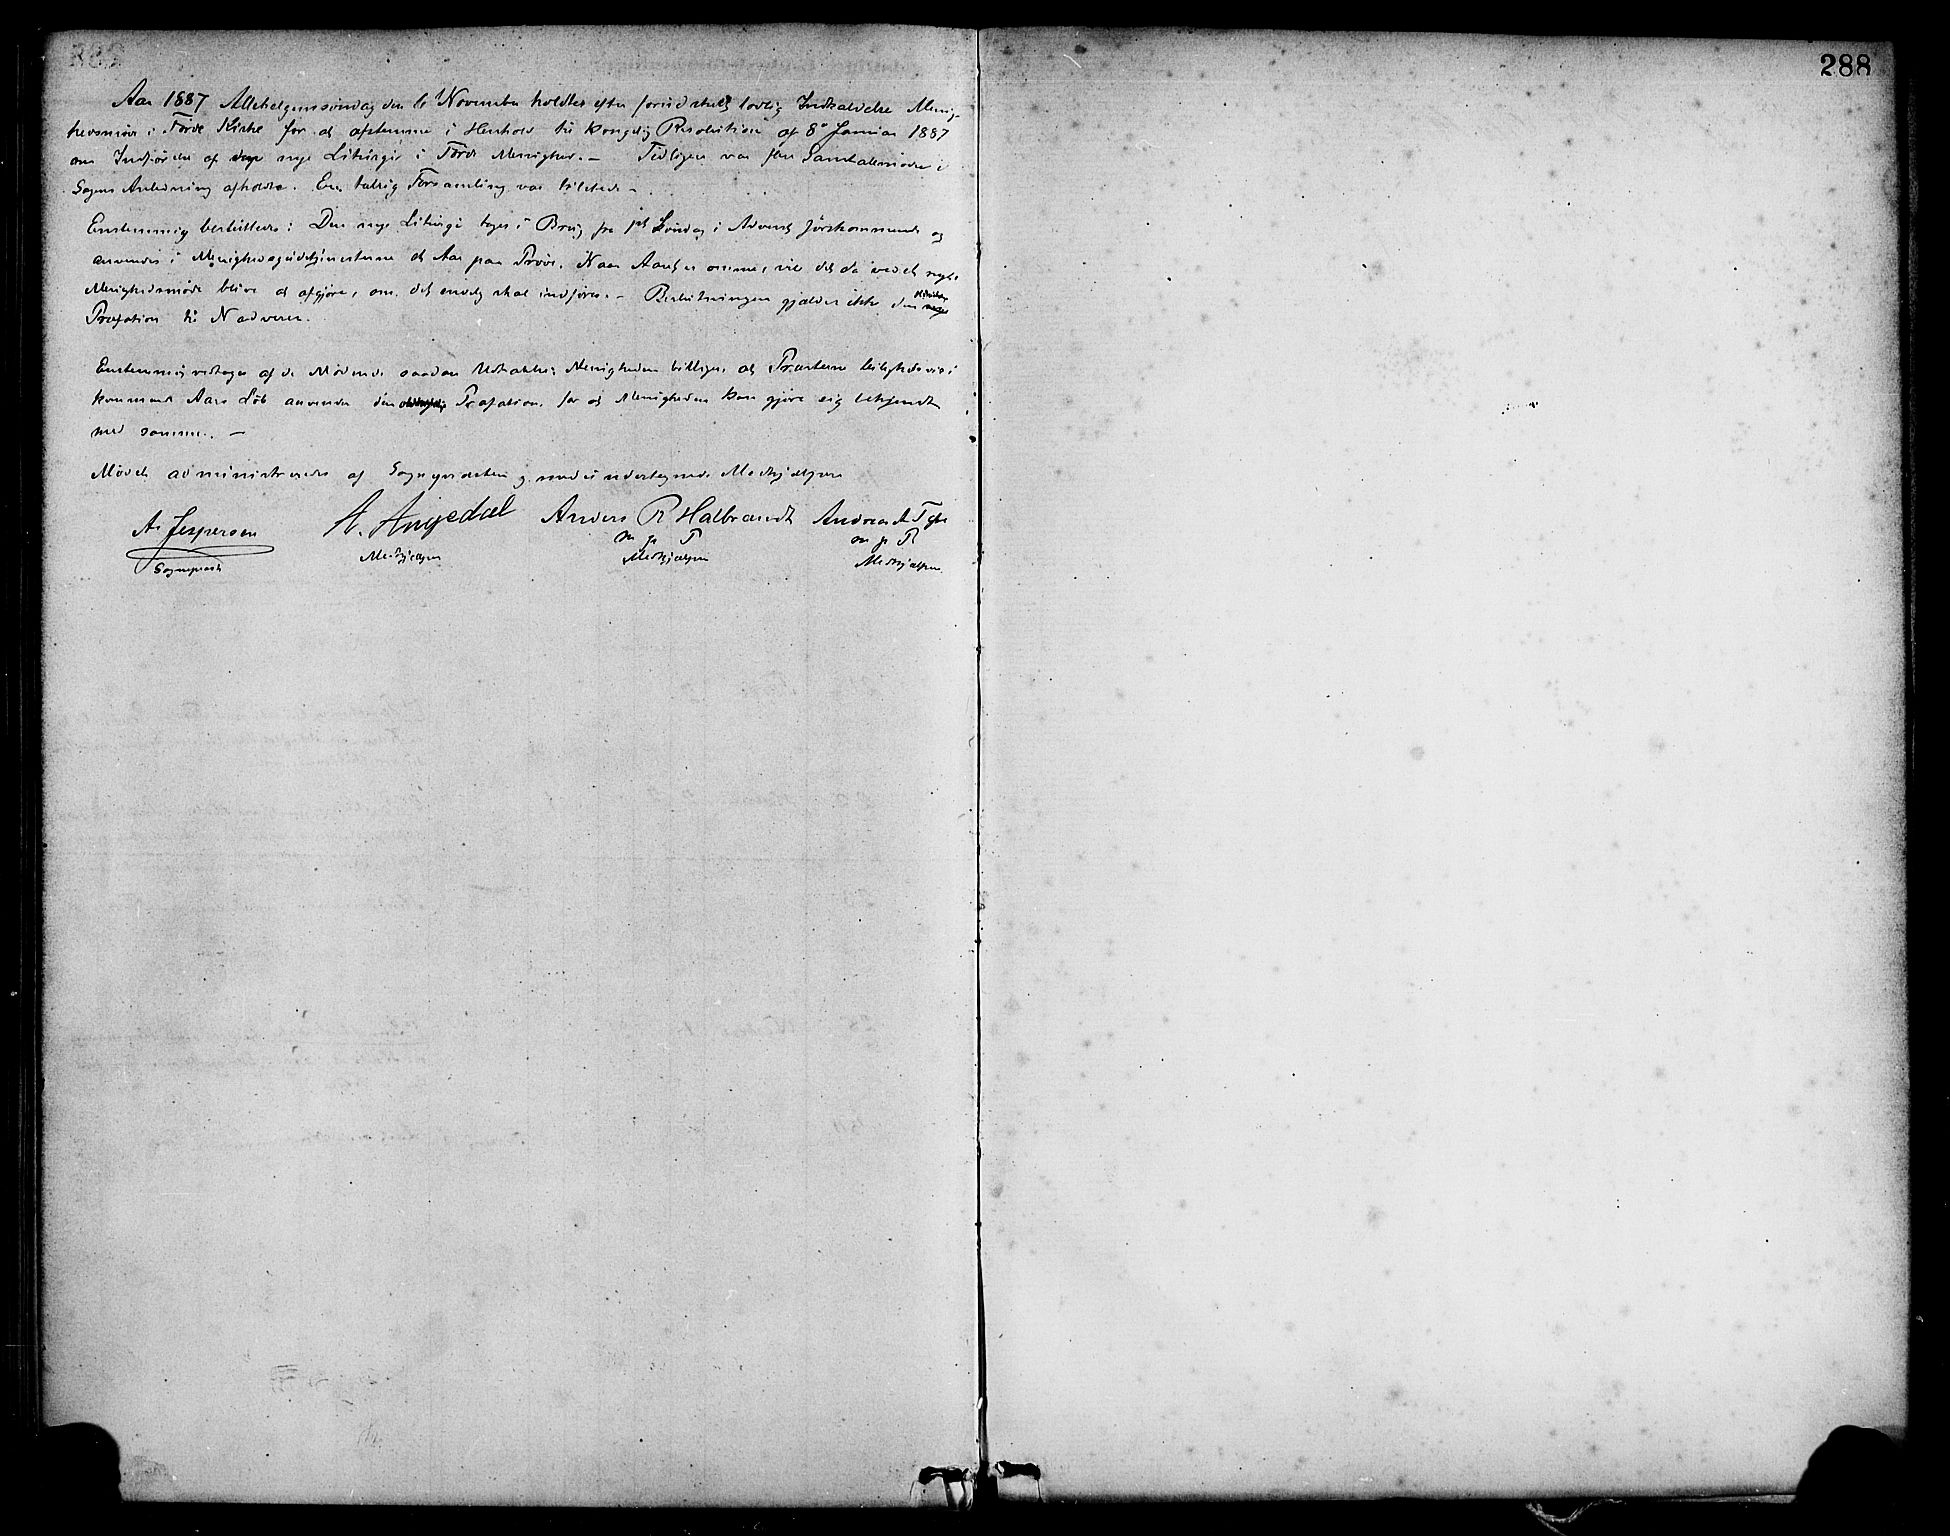 288
Aar 1887 Allehelgenssøndag den 6 November holdtes efter forud skeet lovlig Indkaldelse Menig-
hedsmøde i Førde Kirke for at afstemme i Henhold til kongelig Resolution af 8de Januar 1887
om Indførelse af nye Liturgie i Førde Menighed. — Tidligere var flere Samtalemøder i
Sagens Anledning afholdte. En talrig Forsamling var tilstede —
Enstemmig besluttedes: Den nye Liturgi tages i Brug fra 1ste Søndag i Advent førstkommende og
anvendes i Menighedsgudstjenesterne et Aar paa Prøve. Naar Aaret er omme, vil det da ved et nyt
Menighedsmøde blive at afgjøre, om det endelig skal indføres. — Beslutningen gjælder ikke den
Præfation til Nadveren.
Enstemmig vedtoges af de Mødende saadan Udtalelse: Menigheden billiger, at Præsterne leilighedsvis i
kommende Aars Løb anvender den Præfation, for at Menigheden kan gjøre sig bekjendt
med samme. —
Mødet administreredes af Sognepræsten og medundertegnede Medhjælpere
A. Jespersen H. Angedal Anders R Halbrendt Andreas A
m p P m p P
Sognepræst Medhjælper Medhjælper Medhjælper